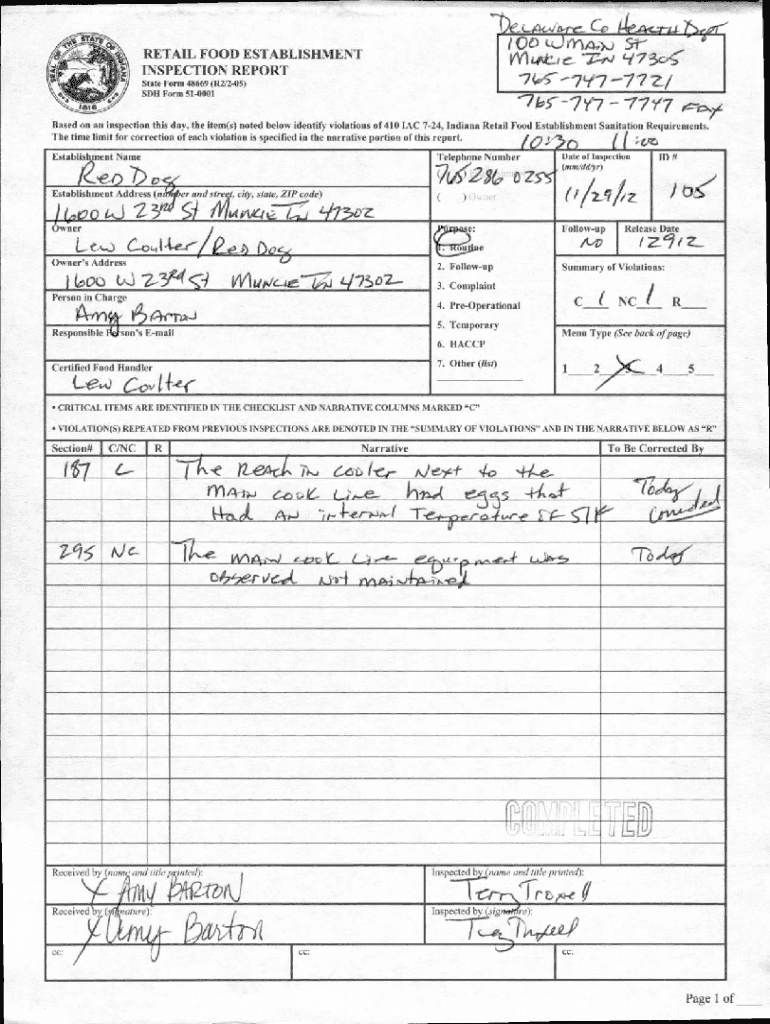 DELAWARE Co HEALTH Dept
100 W MAIN ST
Muncie IN 47305
765-747-7721
765-747-7747 FAX
SEAL OF THE STATE OF INDIANA
1816
RETAIL FOOD ESTABLISHMENT
INSPECTION REPORT
State Form 48669 (R2/2-05)
SDH Form 51-0001
Based on an inspection this day, the item(s) noted below identify violations of 410 IAC 7-24, Indiana Retail Food Establishment Sanitation Requirements.
The time limit for correction of each violation is specified in the narrative portion of this report.
10:30 11:00
Establishment Name
Red Dog
Telephone Number
765 286 0255
( ) Owner
Date of Inspection
(mm/dd/yr)
11/29/12
ID #
105
Establishment Address (number and street, city, state, ZIP code)
1600 W 23rd St Muncie IN 47302
Owner
Lew Coulter/Red Dog
Owner's Address
1600 W 23rd St Muncie IN 47302
Person in Charge
Amy Barton
Responsible Person's E-mail
Certified Food Handler
Lew Coulter
Purpose:
1. Routine
2. Follow-up
3. Complaint
4. Pre-Operational
5. Temporary
6. HACCP
7. Other (list)
Follow-up
NO
Release Date
12912
Summary of Violations:
C 1 NC 1 R
Menu Type (See back of page)
1 2 3 4 5
• CRITICAL ITEMS ARE IDENTIFIED IN THE CHECKLIST AND NARRATIVE COLUMNS MARKED "C"
• VIOLATION(S) REPEATED FROM PREVIOUS INSPECTIONS ARE DENOTED IN THE "SUMMARY OF VIOLATIONS" AND IN THE NARRATIVE BELOW AS "R"
Section# C/NC R Narrative To Be Corrected By
187 C The Reach in cooler Next to the
MAIN cook Line had eggs that
Had AN internal Temperature of 51F
Today
Corrected
295 NC The MAIN cook Line equipment was
observed Not maintained
Today
COMPLETED
Received by (name and title printed):
X AMY BARTON
Inspected by (name and title printed):
Terry Troxell
Received by (signature):
X Amy Barton
Inspected by (signature):
Terry Troxell
cc: cc: cc:
Page 1 of